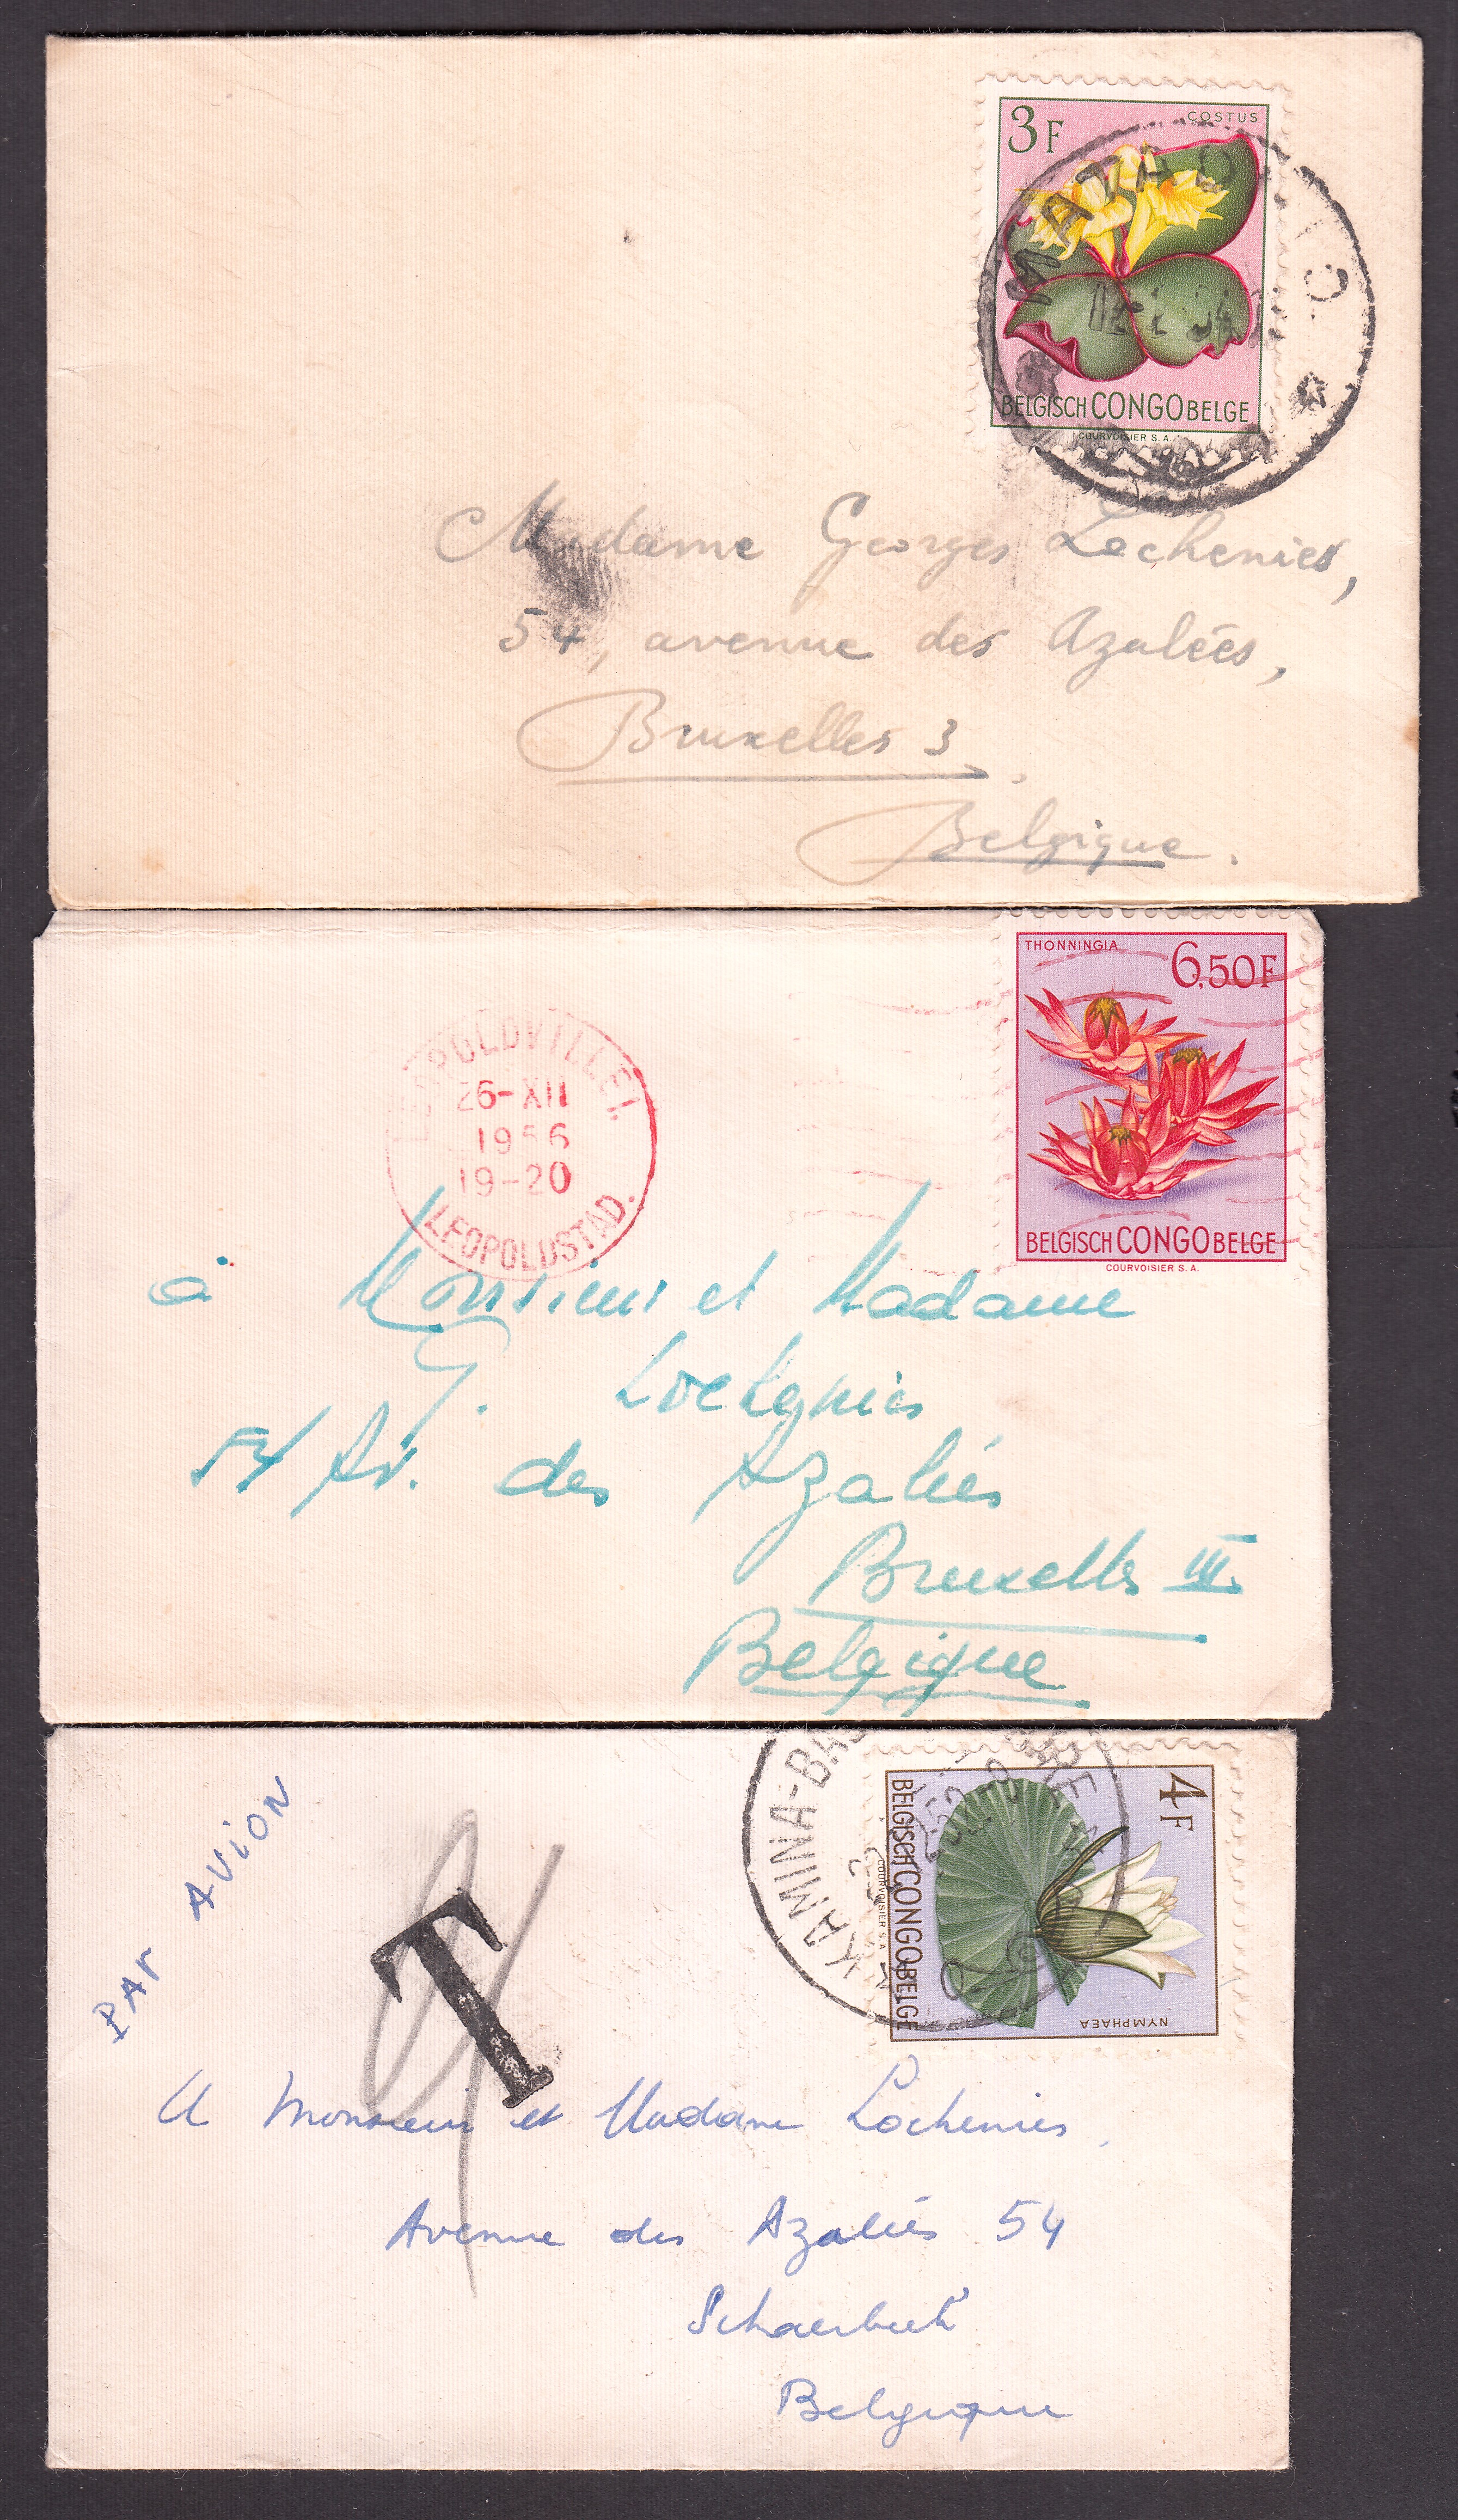 3F
COSTUS
MATADI
BELGISCH CONGO BELGE
COURVOISIER S.A.
Madame Georges Lochenies,
54, avenue des Azalées,
Bruxelles 3.
Belgique.
THONNINGIA
6,50F
BELGISCH CONGO BELGE
COURVOISIER S.A.
LEOPOLDVILLE 1.
26-XII
1956
19-20
LEOPOLDSTAD.
à Monsieur et Madame
G. Lochenies
54 Av. des Azalées
Bruxelles III.
Belgique
PAR AVION
T
4F
BELGISCH CONGO BELGE
COURVOISIER S.A.
NYMPHAEA
KAMINA-BAS
A Monsieur et Madame Lochenies,
Avenue des Azalées 54
Schaerbeek
Belgique